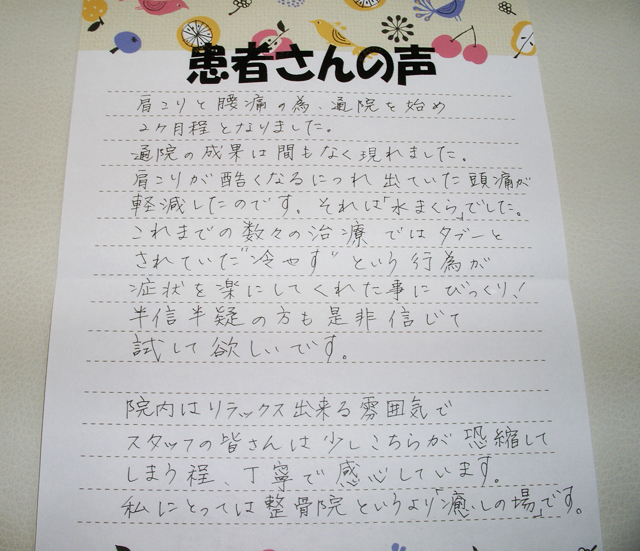 患者さんの声
肩こりと腰痛の為、通院を始め
2ヶ月程となりました。
通院の成果は間もなく現れました。
肩こりが酷くなるにつれ出ていた頭痛が
軽減したのです。それは「水まくら」でした。
これまでの数々の治療ではタブーと
されていた"冷やす"という行為が
症状を楽にしてくれた事にびっくり！
半信半疑の方も是非信じて
試して欲しいです。
院内はリラックス出来る雰囲気で
スタッフの皆さんは少しこちらが恐縮して
しまう程、丁寧で感心しています。
私にとっては整骨院というより「癒しの場」です。